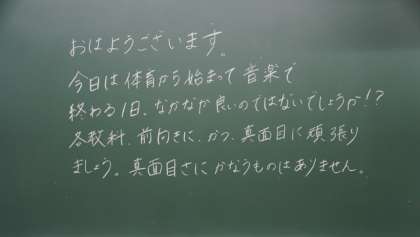 おはようございます。
今日は体育から始まって音楽で
終わる1日。なかなか良いのではないでしょうか!?
各教科、前向きに、かつ、真面目に頑張り
ましょう。真面目さにかなうものはありません。